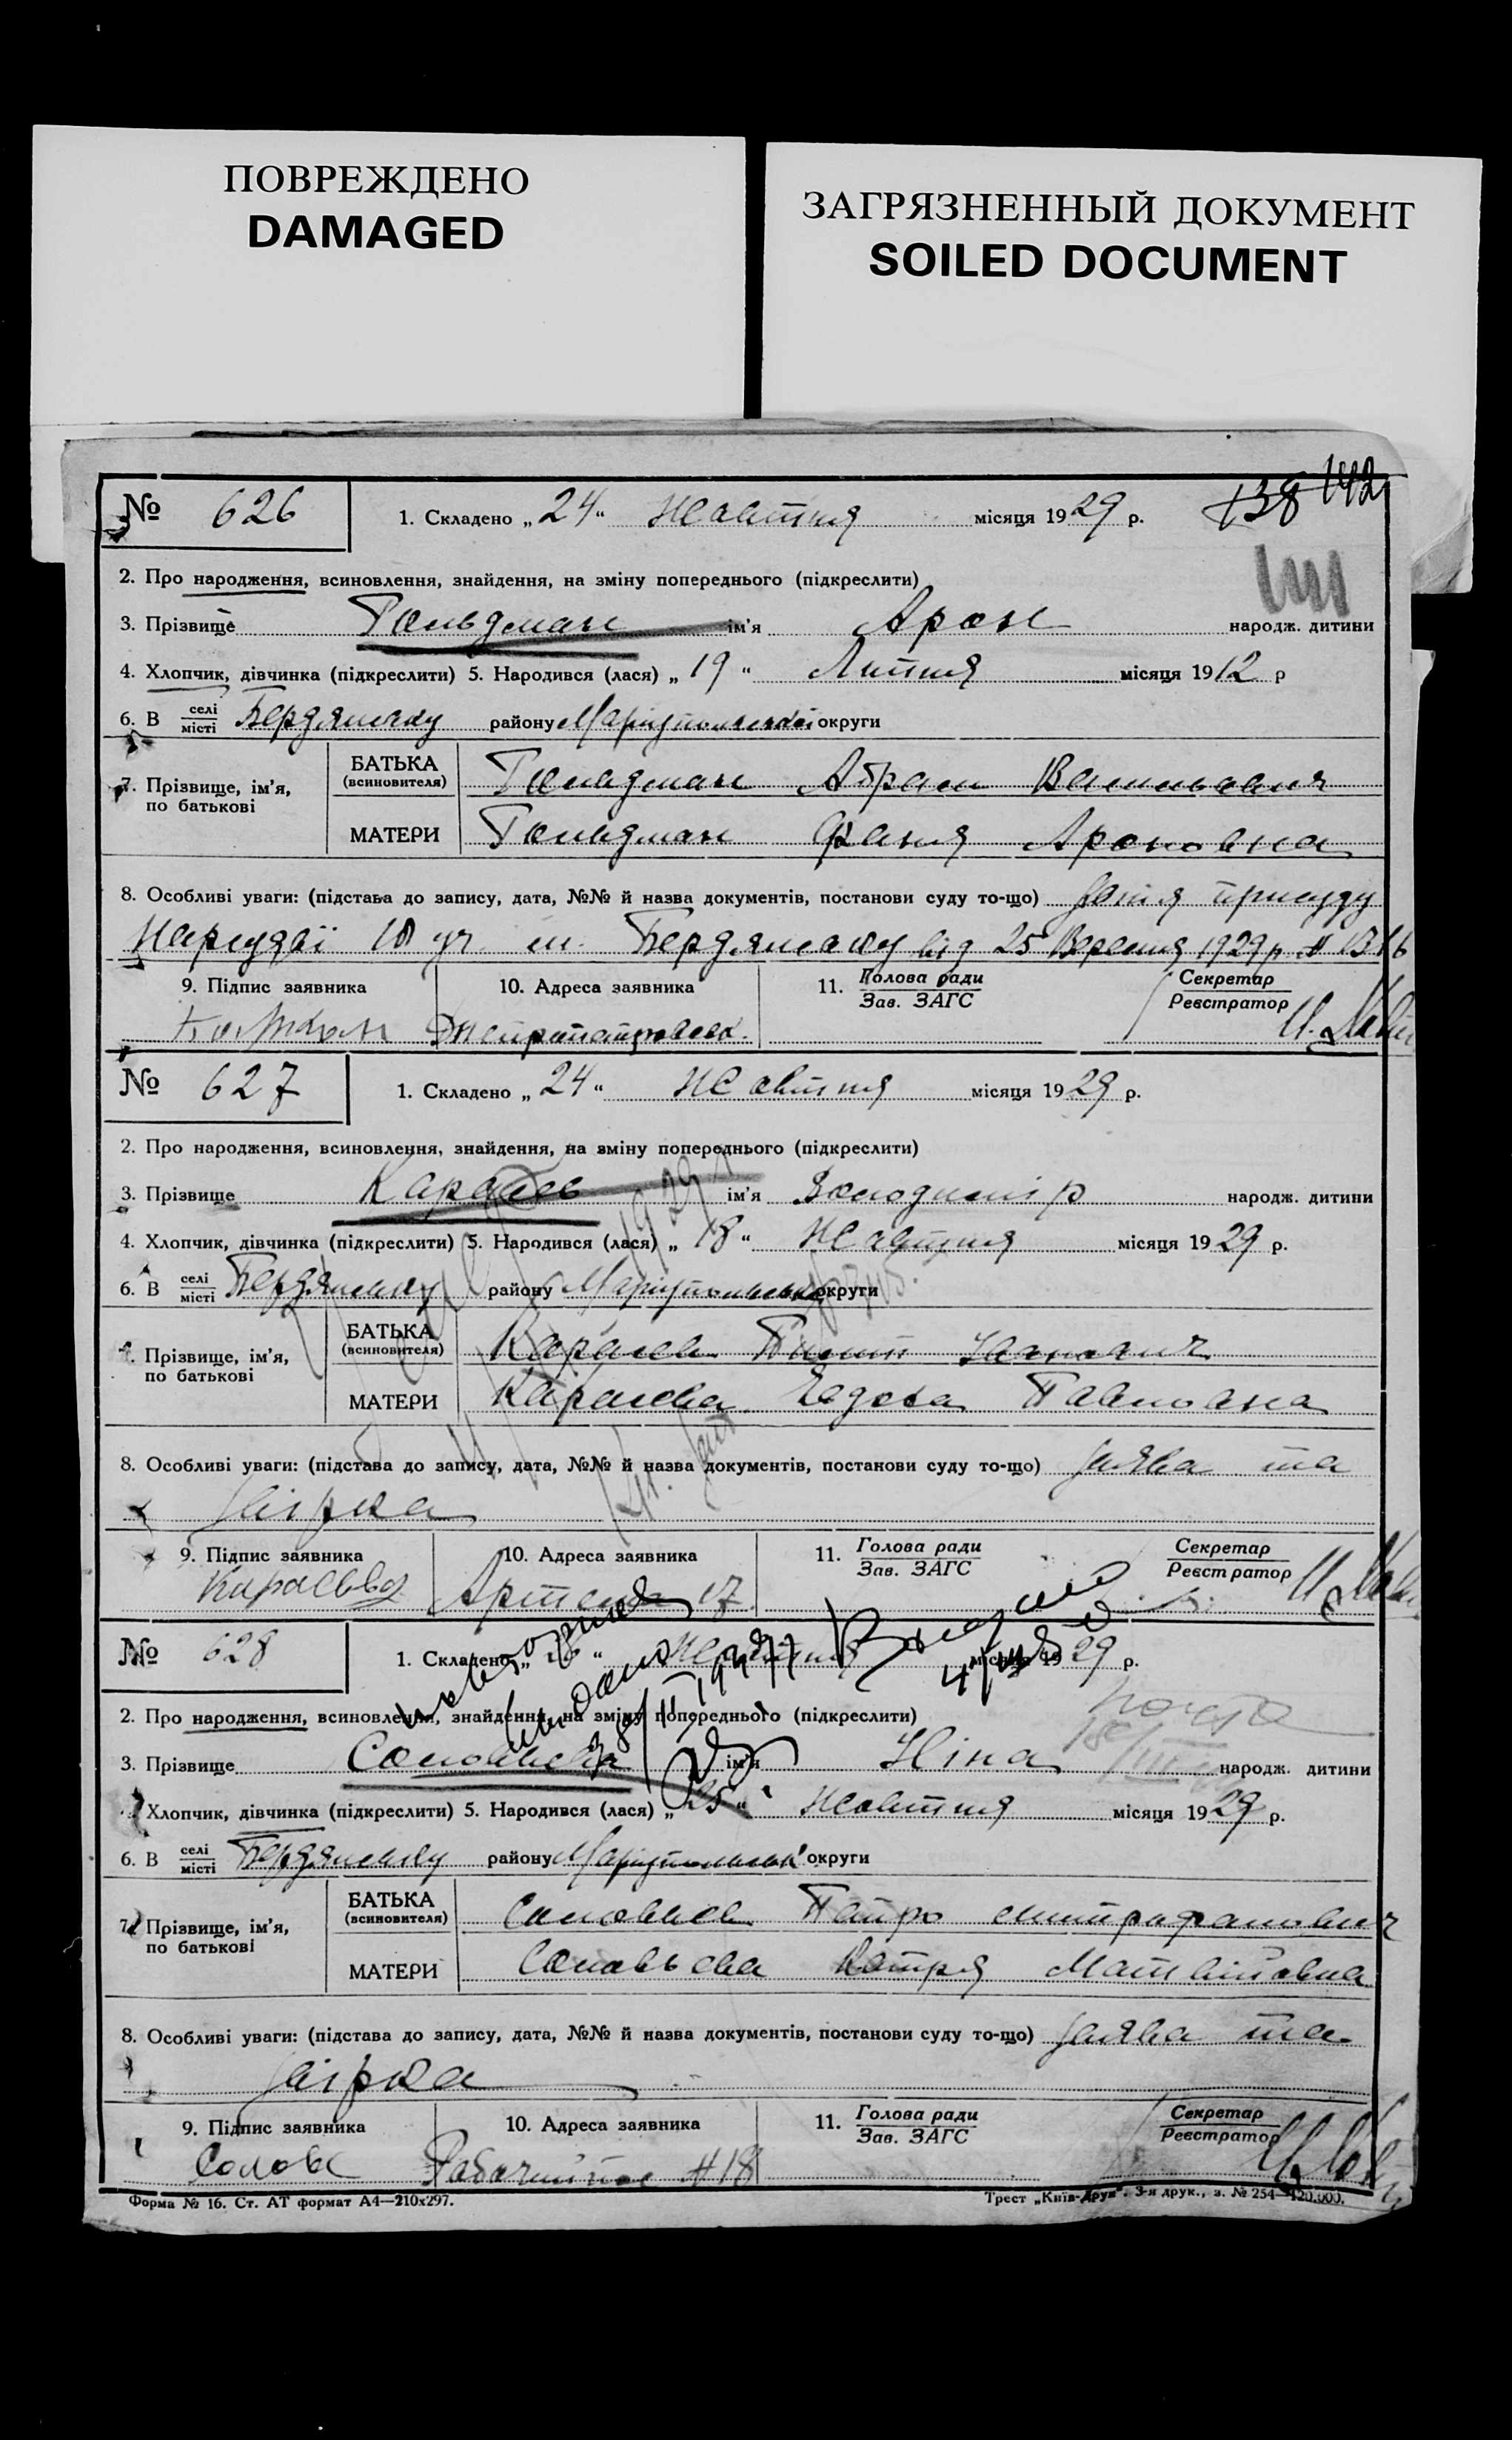 ПОВРЕЖДЕНО
DAMAGED
ЗАГРЯЗНЕННЫЙ ДОКУМЕНТ
SOILED DOCUMENT
138 142
№ 626 1. Складено „ 24 “ Жовтня місяця 1929 р.
2. Про народження, всиновлення, знайдення, на зміну попереднього (підкреслити)
3. Прізвище Гольдман ім’я Арон народж. дитини
4. Хлопчик, дівчинка (підкреслити) 5. Народився (лася) „ 19 “ Липня місяця 1912 р
6. В селі/місті Бердянську району Маріупольської округи
7. Прізвище, ім’я, по батькові
БАТЬКА (всиновителя) Гольдман Абрам
МАТЕРИ Гольдман Фаня Ароновна
8. Особливі уваги: (підстава до запису, дата, №№ й назва документів, постанови суду то-що) Копія присуду
Нарсудві 10 уч. м. Бердянську від 25 Вересня 1929 р. № 1316
9. Підпис заявника 10. Адреса заявника 11. Голова ради/Зав. ЗАГС Секретар/Реєстратор
Дніпропетровськ.
№ 627 1. Складено „ 24 “ Жовтня місяця 1929 р.
2. Про народження, всиновлення, знайдення, на зміну попереднього (підкреслити)
3. Прізвище Карасев ім’я Володимір народж. дитини
4. Хлопчик, дівчинка (підкреслити) 5. Народився (лася) „ 18 “ Жовтня місяця 1929 р.
6. В селі/місті Бердянську району Маріупольськ округи
7. Прізвище, ім’я, по батькові
БАТЬКА (всиновителя) Карасев Іванович
МАТЕРИ Карасева Павловна
8. Особливі уваги: (підстава до запису, дата, №№ й назва документів, постанови суду то-що) Заява та
довірка
9. Підпис заявника 10. Адреса заявника 11. Голова ради/Зав. ЗАГС Секретар/Реєстратор
Карасьова 17
№ 628 1. Складено „ 26 “ Жовтня місяця 1929 р.
2. Про народження, всиновлення, знайдення, на зміну попереднього (підкреслити)
3. Прізвище Соловьева ім’я Ніна народж. дитини
4. Хлопчик, дівчинка (підкреслити) 5. Народився (лася) „ 25 “ Жовтня місяця 1929 р.
6. В селі/місті Бердянську району Маріупольськ округи
7. Прізвище, ім’я, по батькові
БАТЬКА (всиновителя) Соловьев Петро Митрофанович
МАТЕРИ Соловьева Катря Матвіївна
8. Особливі уваги: (підстава до запису, дата, №№ й назва документів, постанови суду то-що) Заява та
довірка
9. Підпис заявника 10. Адреса заявника 11. Голова ради/Зав. ЗАГС Секретар/Реєстратор
Солов № 18
Форма № 16. Ст. АТ формат А4—210х297. Трест „Київ-Друк“. 3-я друк., з. № 254—120.000.